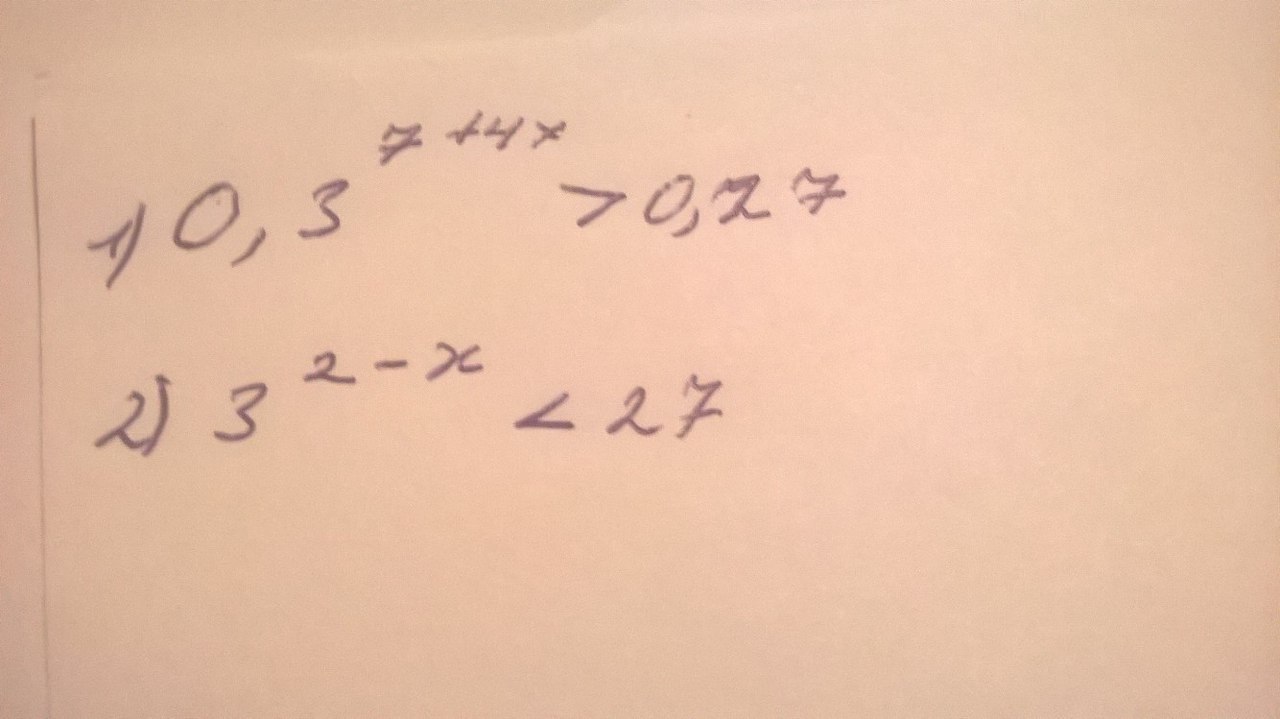 1) 0,3^{7+4x} > 0,27
2) 3^{2-x} < 27